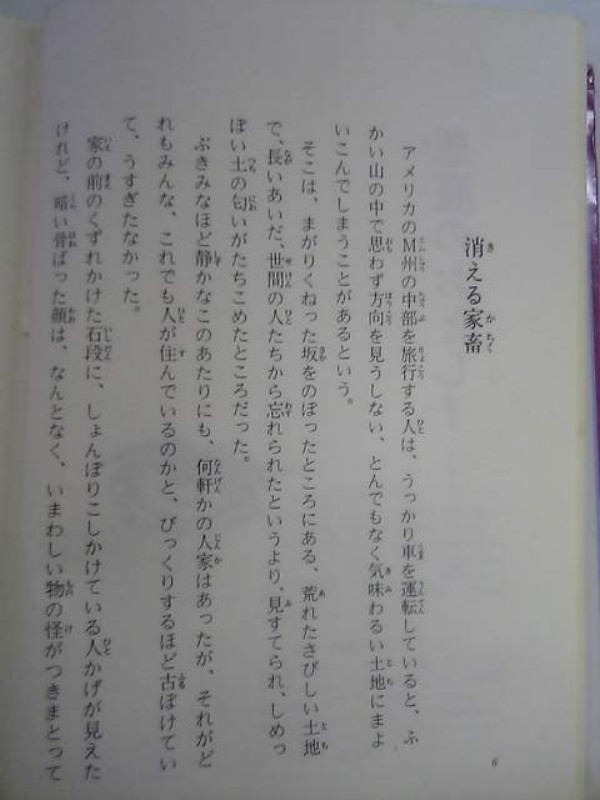 消える家畜
アメリカのM州の中部を旅行する人は、うっかり車を運転していると、ふ
かい山の中で思わず方向を見うしない、とんでもなく気味わるい土地にまよ
いこんでしまうことがあるという。
そこは、まがりくねった坂をのぼったところにある、荒れたさびしい土地
で、長いあいだ、世間の人たちから忘れられたというより、見すてられ、しめっ
ぽい土の匂いがたちこめたところだった。
ぶきみなほど静かなこのあたりにも、何軒かの人家はあったが、それがど
れもみんな、これでも人が住んでいるのかと、びっくりするほど古ぼけてい
て、うすぎたなかった。
家の前のくずれかけた石段に、しょんぼりこしかけている人かげが見えた
けれど、暗い骨ばった顔は、なんとなく、いまわしい物の怪がつきまとって
6